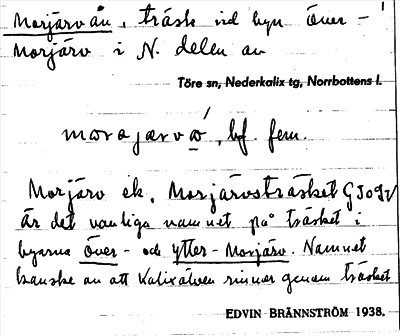 Morjärvån, träsk vid byn Över-
Morjärv i N. delen av
Töre sn, Nederkalix tg, Norrbottens l.
morajærvǫ́, bf. fem.
Morjärv ek. Morjärvsträsket
är det vanliga namnet på träsket i
byarna Över- och Ytter-Morjärv. Namnet
kanske av att Kalixälven rinner genom träsket
EDVIN BRÄNNSTRÖM 1938.